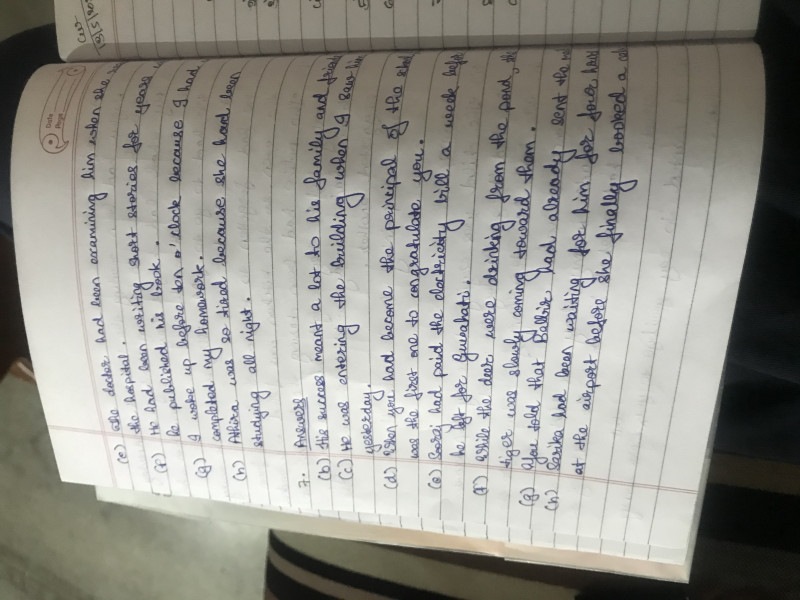 Date
Page
(e) The doctor had been examining him when she
the hospital.
(f) He had been writing short stories for years
he published his book.
(g) I woke up before ten o'clock because I had
completed my homework.
(h) Athira was so tired because she hard been
studying all night.
7. Answers
(b) His success meant a lot to his family and
(c) He was entering the building when I saw him
yesterday.
(d) When you had become the principal of the
was the first one to congratulate you.
(e) had paid the electricity bill a week
he left for Guwahati.
(f) While the deer were drinking from the pond, the
tiger was slowly coming toward them.
(g) You told that had already sent the
(h) had been waiting for him for four
at the airport before she finally booked a